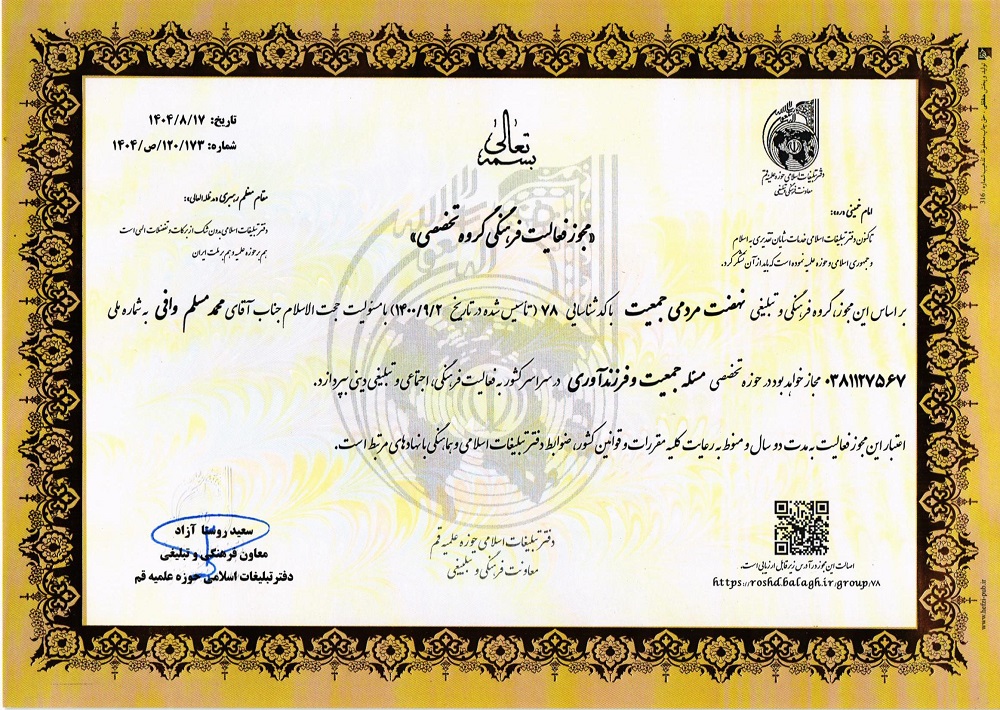 بسمه تعالی
تاریخ: ۱۴۰۴/۸/۱۷
شماره: ۱۲۰/۱۷۳/ص/۱۴۰۴
دفتر تبلیغات اسلامی حوزه علمیه قم
معاونت فرهنگی تبلیغی
امام خمینی «ره»:
تاکنون دفتر تبلیغات اسلامی خدمات شایان تقدیری به اسلام
و جمهوری اسلامی و حوزه علمیه نموده است که باید از آن تشکر کرد.
مقام معظم رهبری «مدظله العالی»:
دفتر تبلیغات اسلامی بدون شک از برکات و تفضلات الهی است
هم بر حوزه علمیه و هم بر ملت ایران
«مجوز فعالیت فرهنگی گروه تخصصی»
بر اساس این مجوز، گروه فرهنگی و تبلیغی نهضت مردمی جمعیت با کد شناسایی ۷۸ (تأسیس شده در تاریخ ۱۴۰۰/۹/۲) با مسئولیت حجت الاسلام جناب آقای محمد مسلم وافی به شماره ملی
۰۳۸۱۱۲۷۵۶۷ مجاز خواهد بود در حوزه تخصصی مسئله جمعیت و فرزندآوری در سراسر کشور به فعالیت فرهنگی، اجتماعی و تبلیغی دینی بپردازد.
اعتبار این مجوز فعالیت به مدت دو سال و منوط به رعایت کلیه مقررات و قوانین کشور، ضوابط دفتر تبلیغات اسلامی و هماهنگی با نهادهای مرتبط است.
سعید روستا آزاد
معاون فرهنگی و تبلیغی
دفتر تبلیغات اسلامی حوزه علمیه قم
دفتر تبلیغات اسلامی حوزه علمیه قم
معاونت فرهنگی و تبلیغی
اصالت این مجوز در آدرس زیر قابل ارزیابی است.
https://roshd.balagh.ir/group/۷۸
www.hefzi-pub.ir